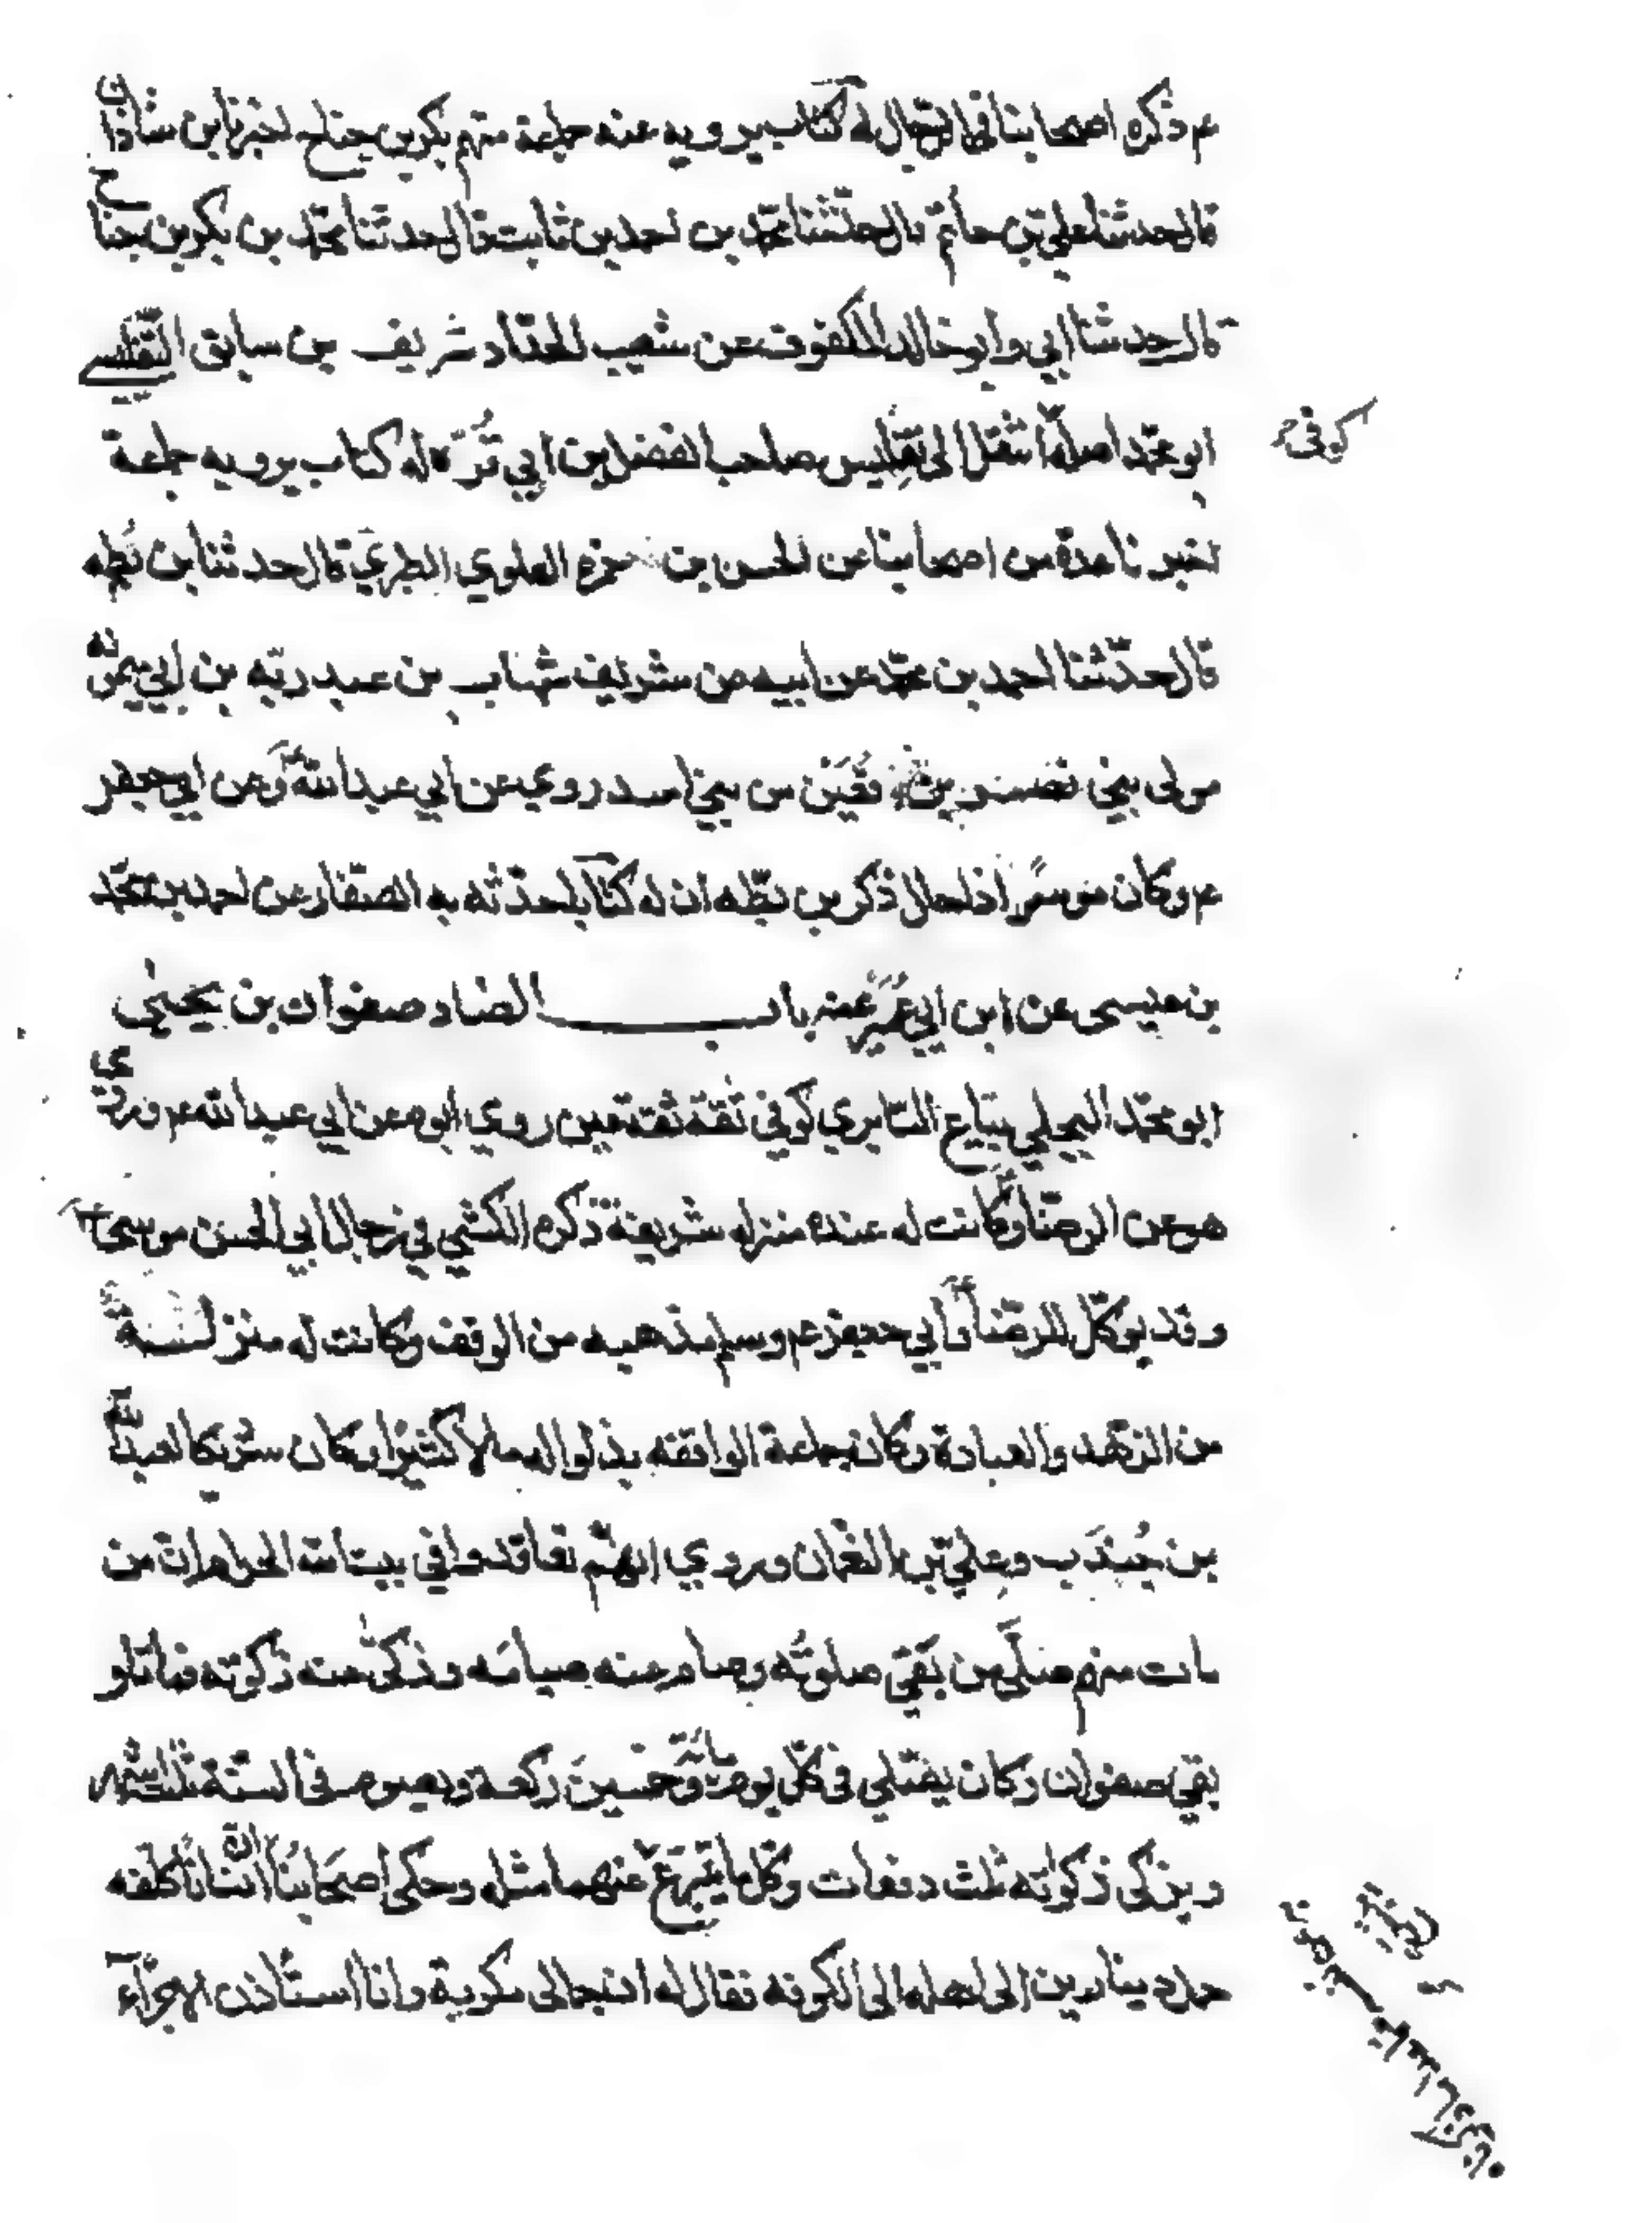 عم ذكره اصحابنا في الرجال له كتاب يرويه عنه جماعة منهم بكر بن جناح اخبرنا ابن شاذان
قال حدثنا علي بن حاتم قال حدثنا محمد بن احمد بن ثابت قال حدثنا محمد بن بكر بن جناح
قال حدثنا ابي وابو خالد المكفوف عن شعيب الحداد شريف بن سابق التفليسي
ابو محمد اصله انتقل الى تفليس صاحب الفضل بن ابي قرة له كتاب يرويه جماعة
كوفي
اخبرنا عدة من اصحابنا عن الحسن بن حمزه العلوي الطبري قال حدثنا ابن بطه
قال حدثنا احمد بن محمد عن ابيه عن شريف شهاب بن عبد ربه بن ابي ميمونه
مولى بني نصر بن قعين من بني اسد روي عن ابي عبد الله وعن ابي جعفر
عم وكان موسرا ذا حال ذكر بن بطه ان له كتابا حدثه به الصفار عن احمد بن محمد
بن عيسى عن ابن ابي عمير عنه باب الصاد صفوان بن يحيى
ابو محمد البجلي بياع السابري كوفي ثقة ثقة عين روي ابوه عن ابي عبد الله عم وروي
هو عن الرضا وكانت له عنده منزله شريفة ذكره الكشي في رجال ابي الحسن موسى
وقد توكل للرضا وابي جعفر عم وسلم مذهبه من الوقف وكانت له منزلة
من الزهد والعبادة وكان جماعة الواقفه بذلوا له مالا كثيرا وكان شريكا لعبد الله
بن جندب وعلي بن النعمان وروي انهم تعاقدوا في بيت الله الحرام ان من
مات منهم صلى من بقي صلوته وصام عنه صيامه وزكى عنه زكوته فماتوا و
بقي صفوان وكان يصلي في كل يوم مائة وخمسين ركعة ويصوم في السنة ثلثة اشهر
ويزكى زكوته ثلث دفعات وكل ما يتبرع عنهما مثله وحكى اصحابنا ان انسانا كلفه
حمل دينارين الى اهله الى الكوفه فقال له ان جمالى مكرية وانا استأذن الاجرآء